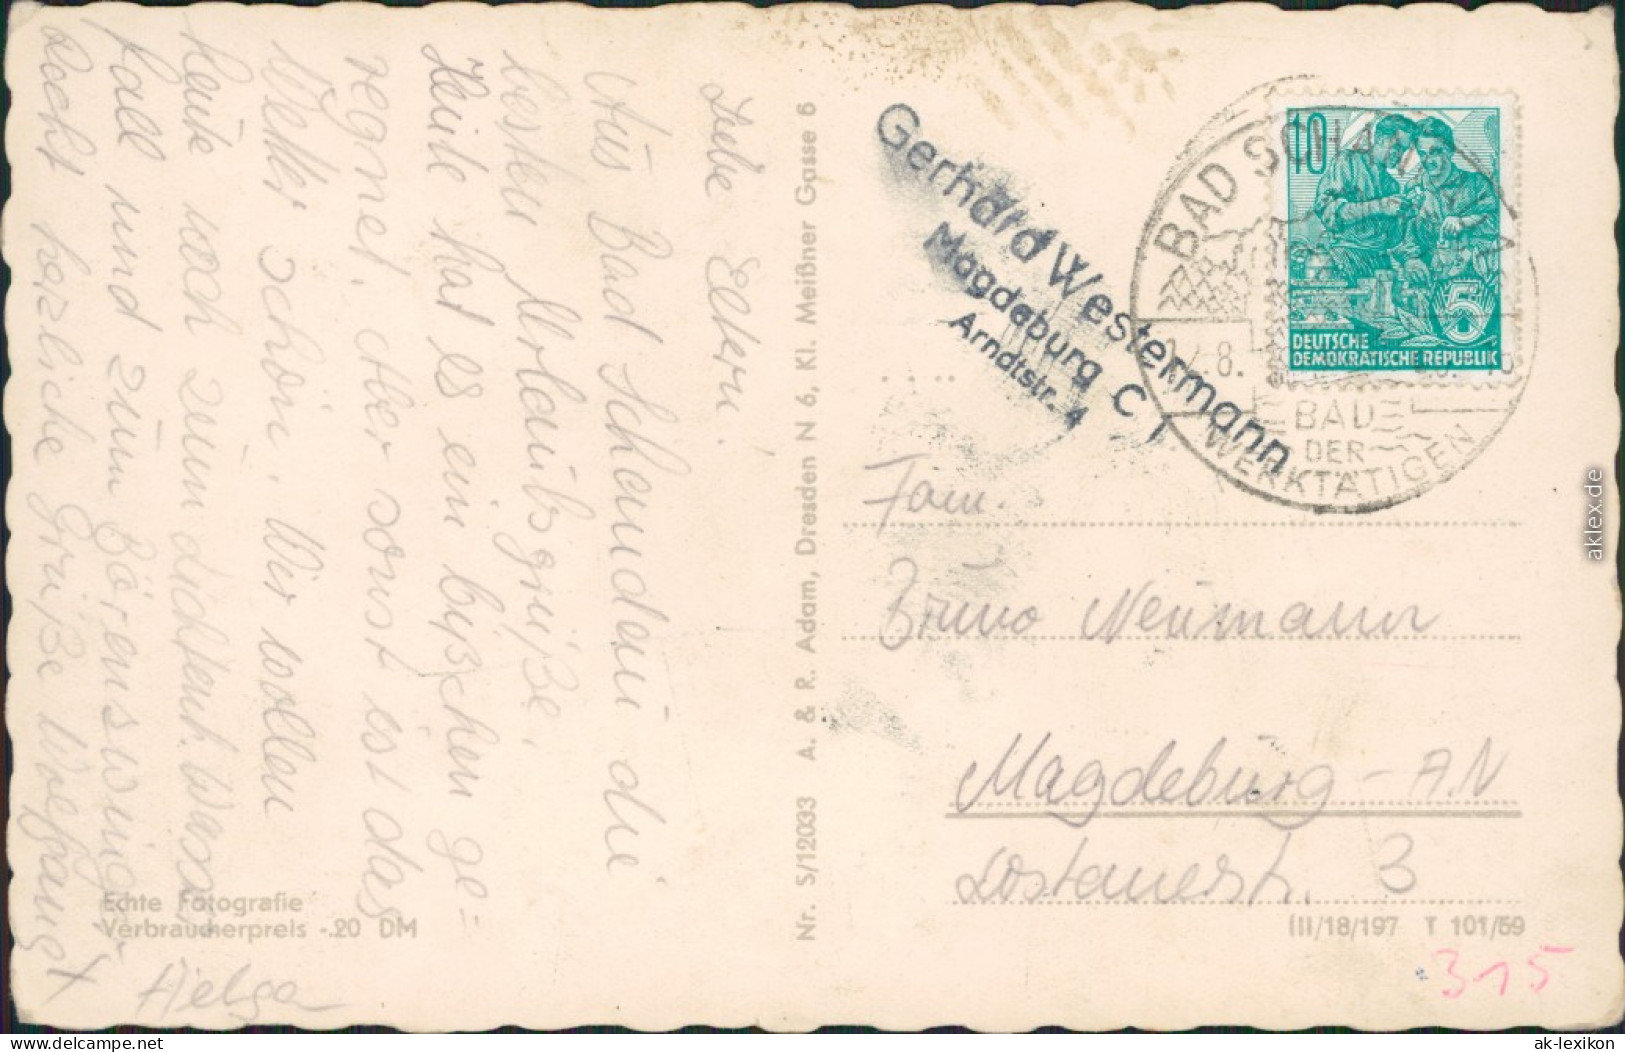 Liebe Eltern!
Aus Bad Schandau die
besten Urlaubsgrüße.
Heute hat es ein bysschen ge=
regnet, aber sonst ist das
Wetter schön. Wir wollen
heute noch zum Lichtenh. Wasser
fall und zum Bärenswinger
Recht herzliche Grüße Wolfgang +
Helga
Echte Fotografie
Verbraucherpreis -.20 DM
Nr. S/12033 A. & R. Adam, Dresden N 6, Kl. Meißner Gasse 6
Gerhard Westermann
Magdeburg C 1
Arndtstr. 4
BAD SCHANDAU
8.
BAD
DER
WERKTÄTIGEN
10
5
DEUTSCHE
DEMOKRATISCHE REPUBLIK
Fam.
Bruno Neumann
Magdeburg - A.N
Lostauerstr. 3
III/18/197 T 101/59
315
aklex.de
www.delcampe.net
ak-lexikon